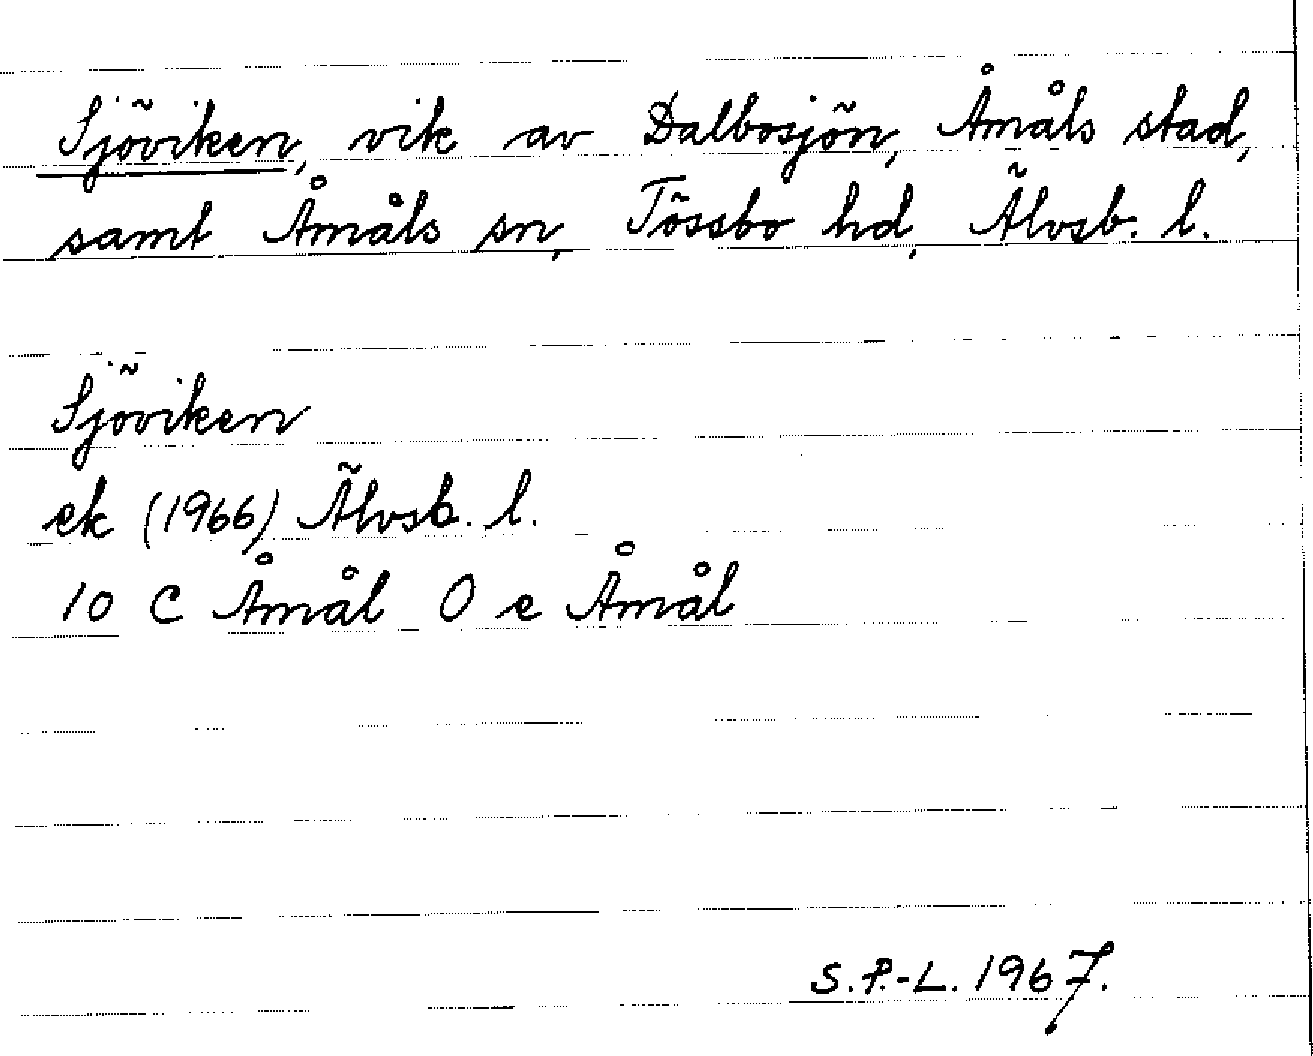 Sjöviken, vik av Dalbosjön, Åmåls stad,
samt Åmåls sn, Tössbo hd, Älvsb. l.
Sjöviken
ek (1966) Älvsb. l.
10 C Åmål 0 e Åmål
S.P.-L. 1967.